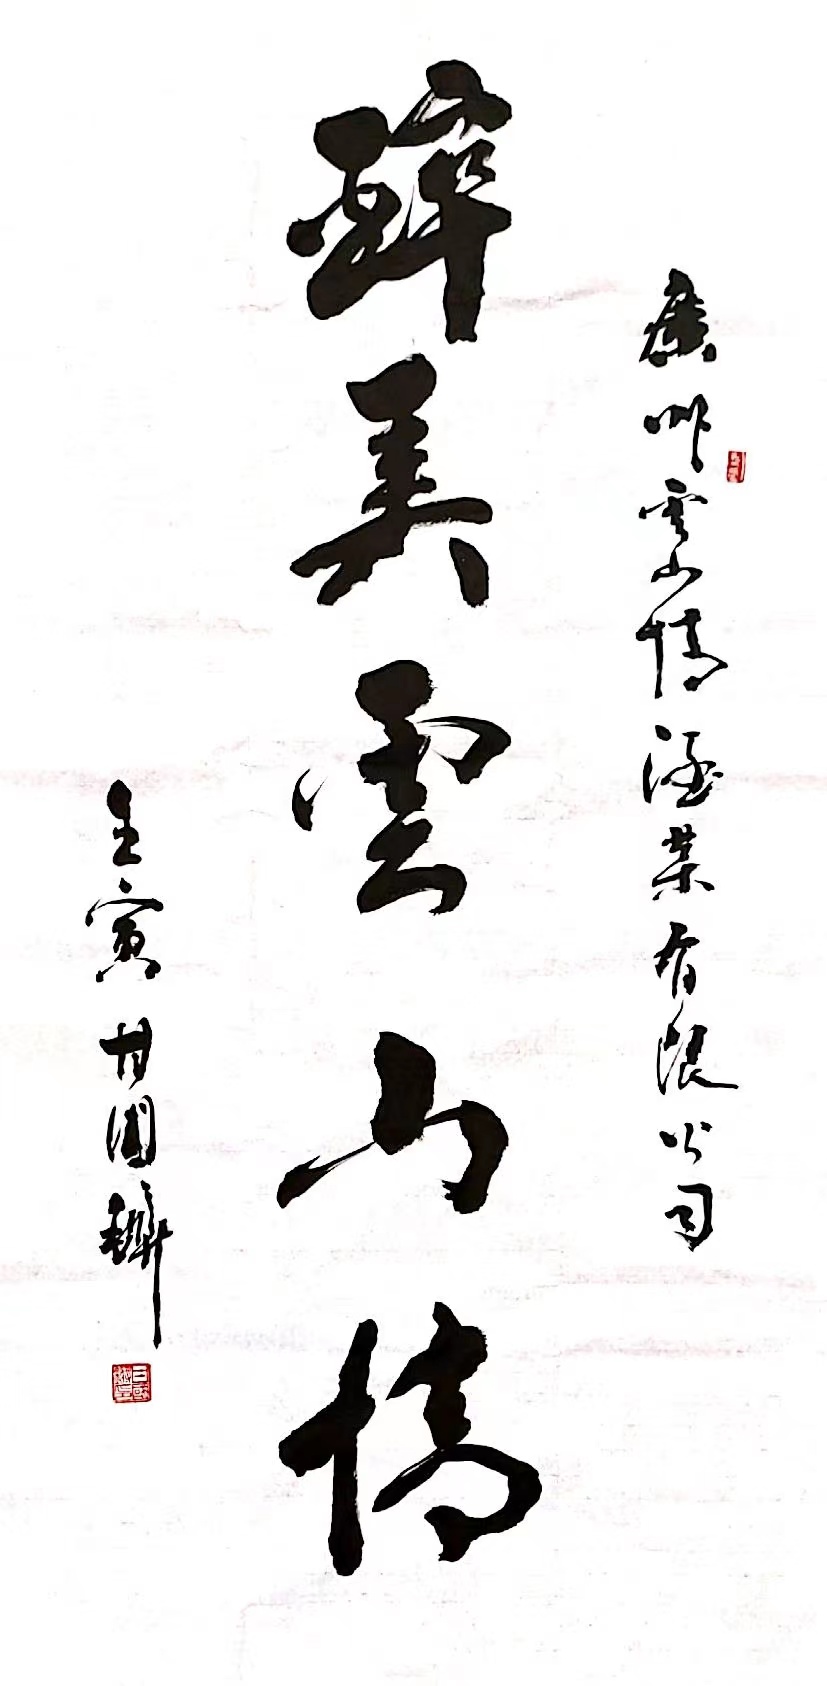 廣州雲山情酒業有限公司
醉美雲山情
壬寅 甘國